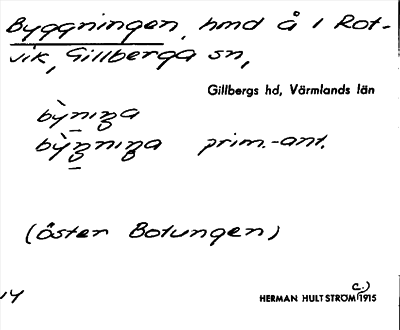 Byggningen, hmd å i Rot-
vik, Gillberga sn,
Gillbergs hd, Värmlands län
prim.-ant.
(öster Botungen)
14
HERMAN HULTSTRÖM c.) 1915